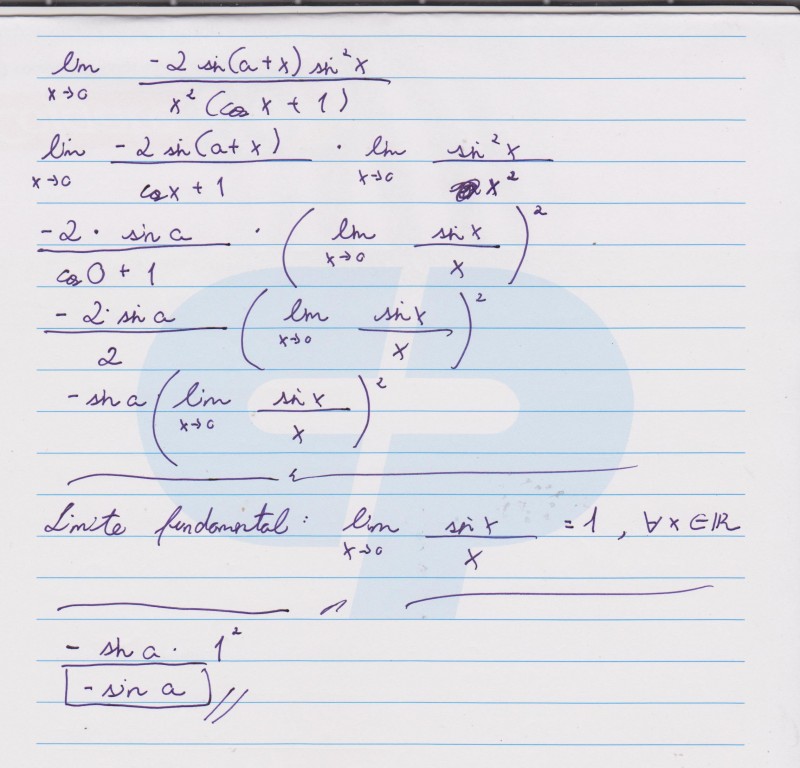 lim x→0 -2 sin(a+x) sin²x / x² (cos x + 1)
lim x→0 -2 sin(a+x) / cos x + 1 · lim x→0 sin²x / x²
-2 · sin a / cos 0 + 1 · ( lim x→0 sin x / x )²
-2 · sin a / 2 ( lim x→0 sin x / x )²
- sin a ( lim x→0 sin x / x )²
Limite fundamental: lim x→0 sin x / x = 1 , ∀ x ∈ ℝ
- sin a · 1²
- sin a //